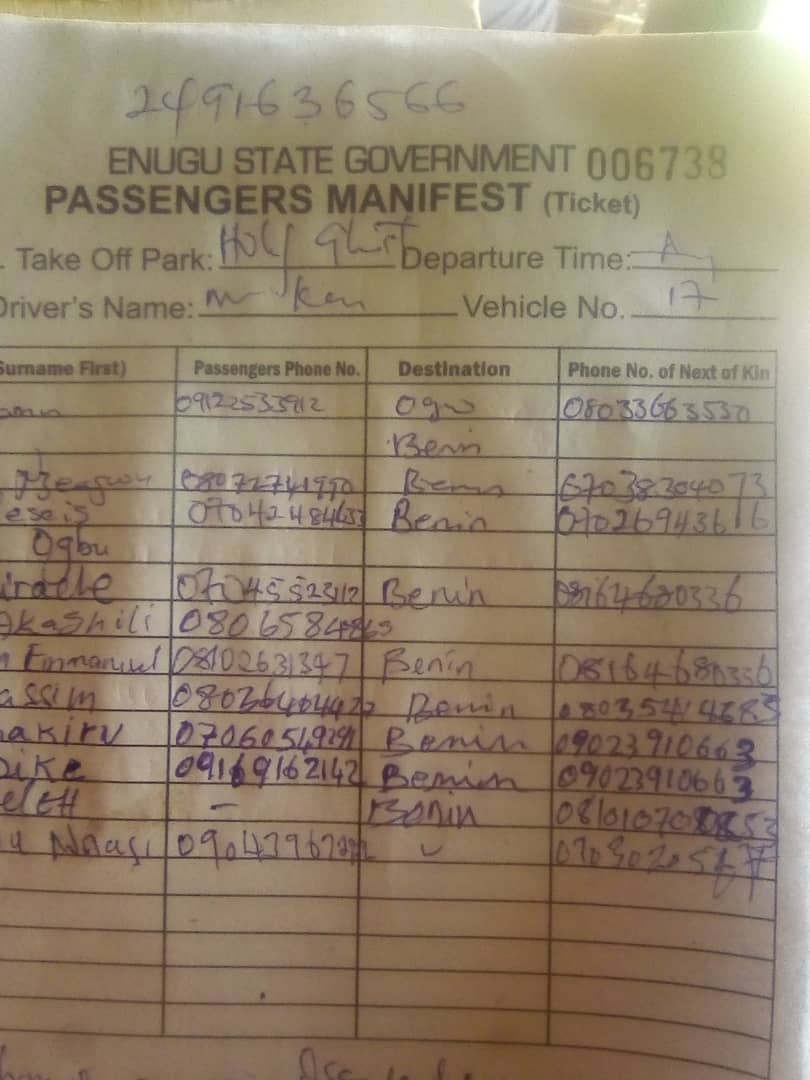 2491636566
ENUGU STATE GOVERNMENT 006738
PASSENGERS MANIFEST (Ticket)
Take Off Park: Holy Ghost Departure Time:
Driver's Name: Mr Ken Vehicle No. 17
Surname First) Passengers Phone No. Destination Phone No. of Next of Kin
09122533912 Ogw 08033663530
Benin
08072741990 Benin 07038304073
07042484633 Benin 07026943616
Ogbu
iracle 07045523112 Benin 08164680336
akashili 08065848863
Emmanuel 08102631347 Benin 08164680336
assim 08036404422 Benin 08035414683
akiru 07060549291 Benin 09023910663
oike 09169162142 Benin 09023910663
elett - Benin
Nnasi